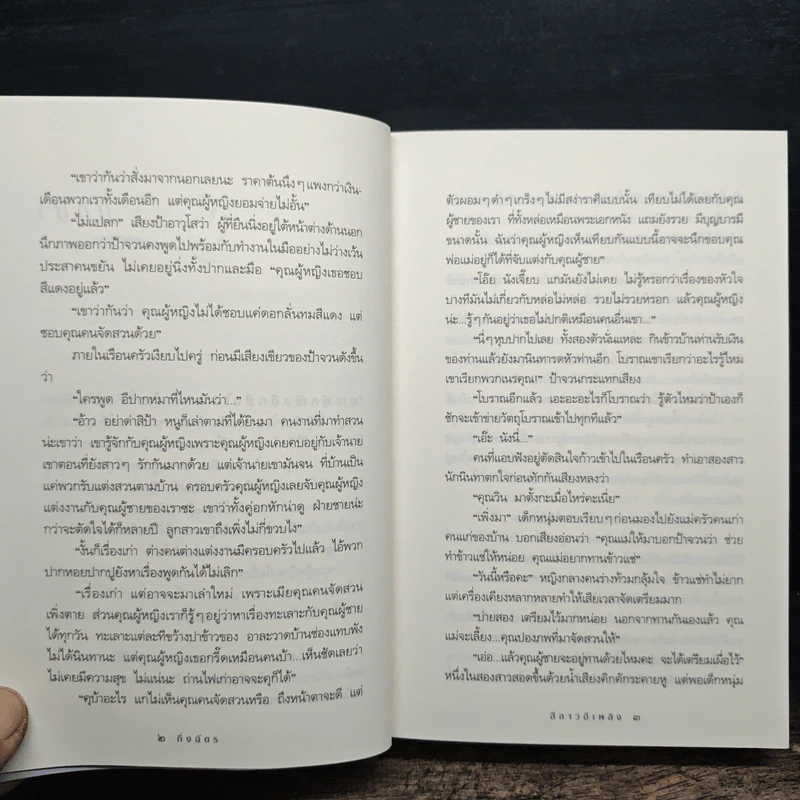 “เขาว่ากันว่าสั่งมาจากนอกเลยนะ ราคาต้นนึงๆ แพงกว่าเงิน-
เดือนพวกเราทั้งเดือนอีก แต่คุณผู้หญิงยอมจ่ายไม่อั้น”
“ไม่แปลก” เสียงป้าอาวุโสว่า ผู้ที่ยืนนิ่งอยู่ใต้หน้าต่างด้านนอก
นึกภาพออกว่าป้าจวนคงพูดไปพร้อมกับทำงานในมืออย่างไม่ว่างเว้น
ประสาคนขยัน ไม่เคยอยู่นิ่งทั้งปากและมือ “คุณผู้หญิงเธอชอบ
สีแดงอยู่แล้ว”
“เขาว่ากันว่า คุณผู้หญิงไม่ได้ชอบแค่ดอกลั่นทมสีแดง แต่
ชอบคุณคนจัดสวนด้วย”
ภายในเรือนครัวเงียบไปครู่ ก่อนมีเสียงเขียวของป้าจวนดังขึ้น
ว่า
“ใครพูด อีปากหมาที่ไหนมันว่า...”
“อ้าว อย่าด่าสิป้า หนูก็เล่าตามที่ได้ยินมา คนงานที่มาทำสวน
น่ะเขาว่า เขารู้จักกับคุณผู้หญิงเพราะคุณผู้หญิงเคยคบอยู่กับเจ้านาย
เขาตอนที่ยังสาวๆ รักกันมากด้วย แต่เจ้านายเขามันจน ที่บ้านเป็น
แค่พวกรับแต่งสวนตามบ้าน ครอบครัวคุณผู้หญิงเลยจับคุณผู้หญิง
แต่งงานกับคุณผู้ชายของเราซะ เขาว่าทั้งคู่อกหักน่าดู ฝ่ายชายน่ะ
กว่าจะตัดใจได้ก็หลายปี ลูกสาวเขาถึงเพิ่งไม่กี่ขวบไง”
“งั้นก็เรื่องเก่า ต่างคนต่างแต่งงานมีครอบครัวไปแล้ว ไอ้พวก
ปากหอยปากปูยังหาเรื่องพูดกันได้ไม่เลิก”
“เรื่องเก่า แต่อาจจะมาเล่าใหม่ เพราะเมียคุณคนจัดสวน
เพิ่งตาย ส่วนคุณผู้หญิงเราก็รู้ๆ อยู่ว่าหาเรื่องทะเลาะกับคุณผู้ชาย
ได้ทุกวัน ทะเลาะแต่ละทีขว้างปาข้าวของ อาละวาดบ้านช่องแทบพัง
ไม่ได้นินทานะ แต่คุณผู้หญิงเธอกรี๊ดเหมือนคนบ้า...เห็นชัดเลยว่า
ไม่เคยมีความสุข ไม่แน่นะ ถ่านไฟเก่าอาจจะคุก็ได้”
“คุบ้าอะไร แกไม่เห็นคุณคนจัดสวนหรือ ถึงหน้าตาจะดี แต่
๒ กิ่งฉัตร
ตัวผอมๆ ดำๆ เกร็งๆ ไม่มีสง่าราศีแบบนั้น เทียบไม่ได้เลยกับคุณ
ผู้ชายของเรา ที่ทั้งหล่อเหมือนพระเอกหนัง แถมยังรวย มีบุญบารมี
ขนาดนั้น ฉันว่าคุณผู้หญิงเห็นเทียบกันแบบนี้อาจจะนึกขอบคุณ
พ่อแม่อยู่ก็ได้ที่จับแต่งกับคุณผู้ชาย”
“โอ๊ย นังเจี๊ยบ แกมันยังไม่เคย ไม่รู้หรอกว่าเรื่องของหัวใจ
บางทีมันไม่เกี่ยวกับหล่อไม่หล่อ รวยไม่รวยหรอก แล้วคุณผู้หญิง
น่ะ...รู้ๆ กันอยู่ว่าเธอไม่ปกติเหมือนคนอื่นเขา...”
“นี่ๆ หุบปากไปเลย ทั้งสองตัวนั่นแหละ กินข้าวบ้านท่านรับเงิน
ของท่านแล้วยังมานินทารดหัวท่านอีก โบราณเขาเรียกว่าอะไรรู้ไหม
เขาเรียกพวกเนรคุณ!” ป้าจวนกระแทกเสียง
“โบราณอีกแล้ว เอะอะอะไรก็โบราณว่า รู้ตัวไหมว่าป้าเองก็
ชักจะเข้าข่ายวัตถุโบราณเข้าไปทุกทีแล้ว”
“เอ๊ะ นังนี่...”
คนที่แอบฟังอยู่ตัดสินใจก้าวเข้าไปในเรือนครัว ทำเอาสองสาว
นักนินทาตกใจก่อนทักกันเสียงหลงว่า
“คุณวิน มาตั้งกะเมื่อไหร่คะเนี่ย”
“เพิ่งมา” เด็กหนุ่มตอบเรียบๆ ก่อนมองไปยังแม่ครัวคนเก่า
คนแก่ของบ้าน บอกเสียงอ่อนว่า “คุณแม่ให้มาบอกป้าจวนว่า ช่วย
ทำข้าวแช่ให้หน่อย คุณแม่อยากทานข้าวแช่”
“วันนี้หรือคะ” หญิงกลางคนร่างท้วมกลุ้มใจ ข้าวแช่ทำไม่ยาก
แต่เครื่องเคียงหลากหลายทำให้เสียเวลาจัดเตรียมมาก
“บ่ายสอง เตรียมไว้มากหน่อย นอกจากทานกันเองแล้ว คุณ
แม่จะเลี้ยง...คุณปองภพที่มาจัดสวนให้”
“เอ่อ...แล้วคุณผู้ชายจะอยู่ทานด้วยไหมคะ จะได้เตรียมเผื่อไว้”
หนึ่งในสองสาวสอดขึ้นด้วยน้ำเสียงคิกคักระคายหู แต่พอเด็กหนุ่ม
ลีลาวดีเพลิง ๓